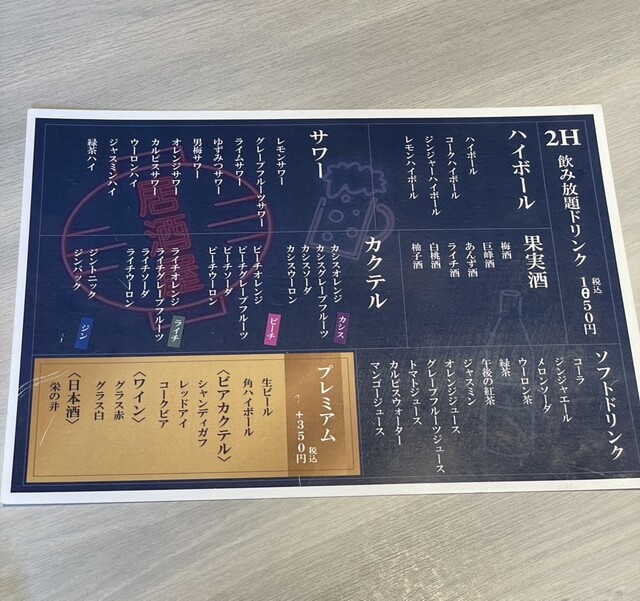 2H 飲み放題ドリンク 税込1050円
ハイボール
ハイボール
コークハイボール
ジンジャーハイボール
レモンハイボール
サワー
レモンサワー
グレープフルーツサワー
ライムサワー
ゆずみつサワー
男梅サワー
オレンジサワー
カルピスサワー
ウーロンハイ
ジャスミンハイ
緑茶ハイ
果実酒
梅酒
巨峰酒
あんず酒
ライチ酒
白桃酒
柚子酒
カクテル
カシス
カシスオレンジ
カシスグレープフルーツ
カシスソーダ
カシスウーロン
ピーチ
ピーチオレンジ
ピーチグレープフルーツ
ピーチソーダ
ピーチウーロン
ライチ
ライチオレンジ
ライチグレープフルーツ
ライチソーダ
ライチウーロン
ジン
ジントニック
ジンバック
居酒屋
ソフトドリンク
コーラ
ジンジャエール
メロンソーダ
ウーロン茶
緑茶
午後の紅茶
ジャスミン
オレンジジュース
グレープフルーツジュース
トマトジュース
カルピスウォーター
マンゴージュース
プレミアム 税込+350円
生ビール
角ハイボール
〈ビアカクテル〉
シャンディガフ
レッドアイ
コークビア
〈ワイン〉
グラス赤
グラス白
〈日本酒〉
栄の井